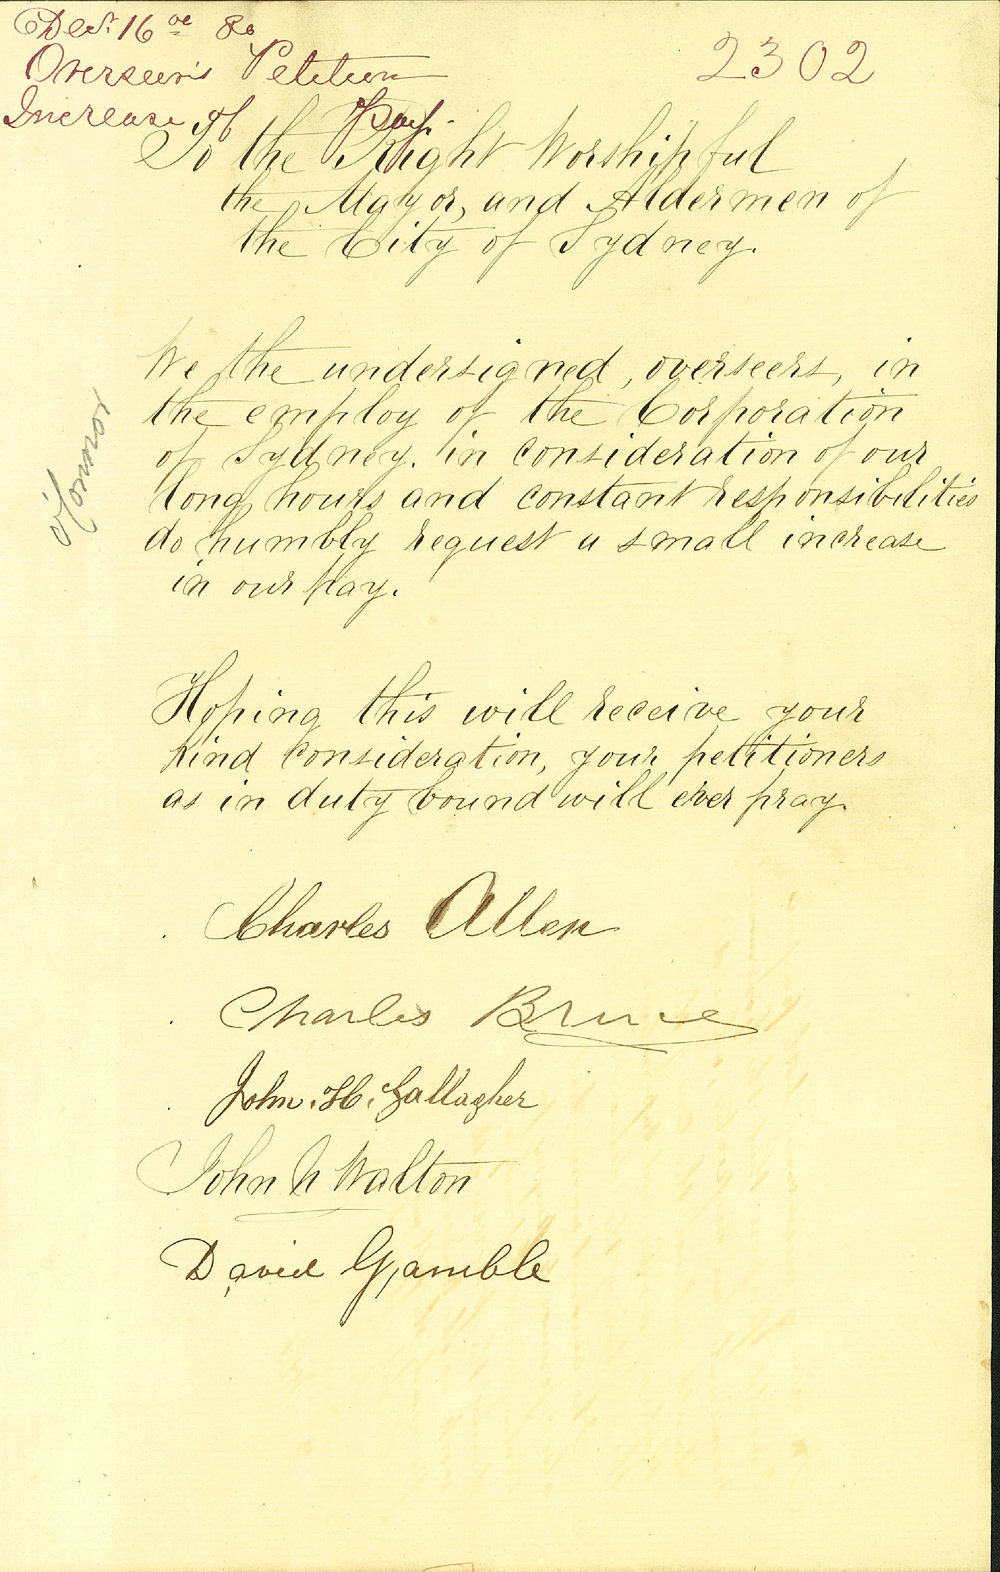 Decr. 16 80
Overseers Petition
Increase of Pay.
2302
To the Right Worshipful
the Mayor, and Aldermen of
the City of Sydney.
We the undersigned, overseers, in
the employ of the Corporation
of Sydney. in consideration of our
long hours and constant responsibilities
do humbly request a small increase
in our pay.
O'Connor
Hoping this will receive your
kind consideration, your petitioners
as in duty bound will ever pray.
Charles Allen
Charles Bruce
John. H. Gallagher
John N Walton
David Gamble